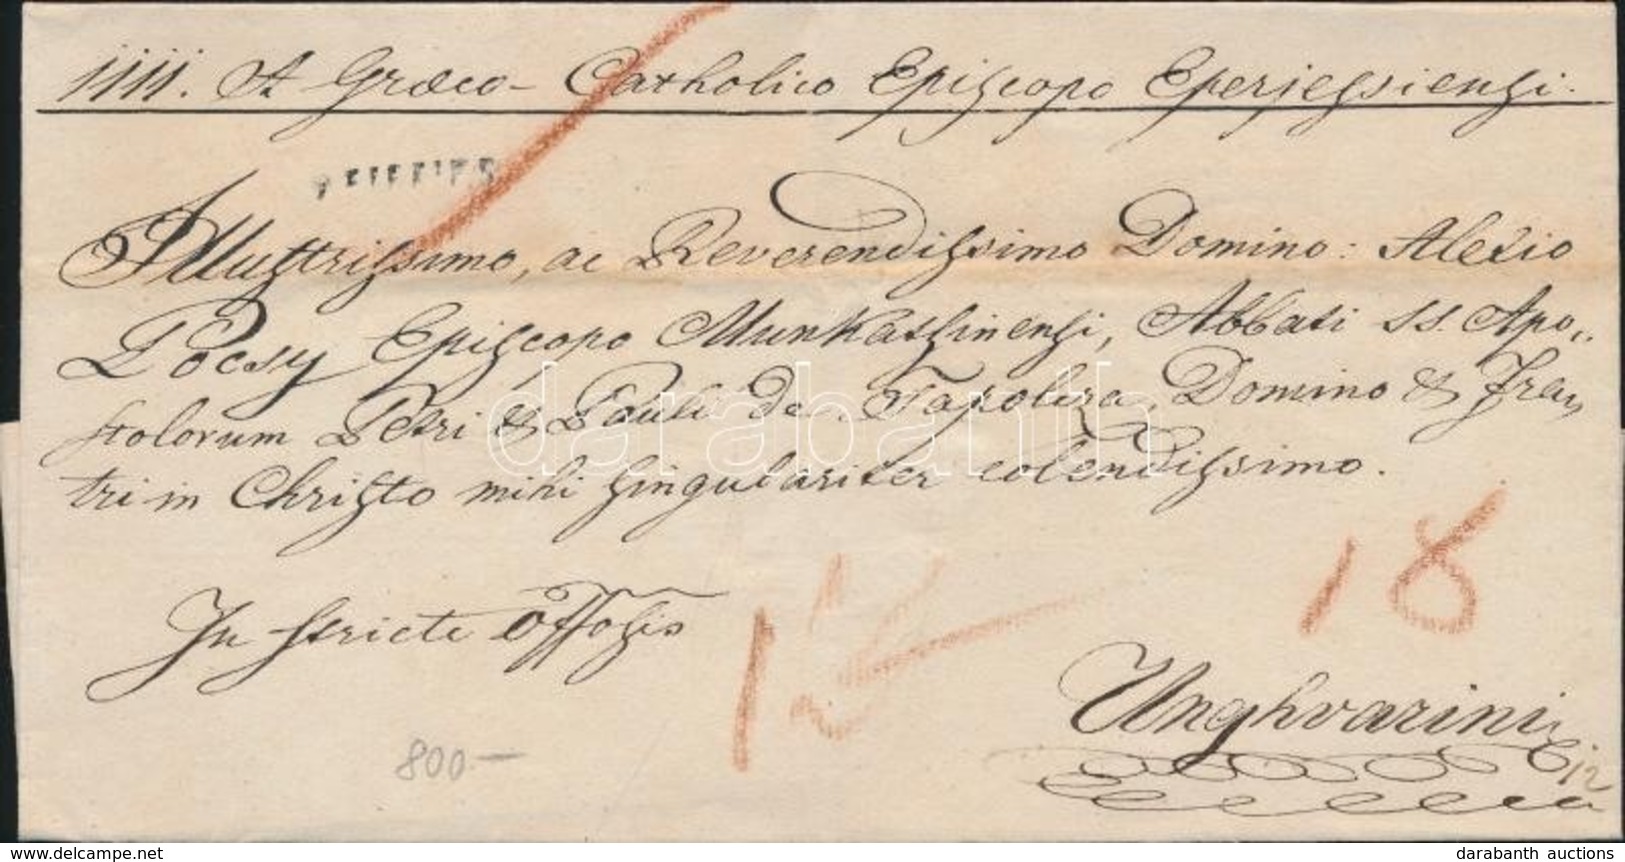 1111. A Græco-Catholico Episcopo Eperjessiensi.
Illustrissimo, ac Reverendissimo Domino: Alexio
Pocsy Episcopo Munkatsinensi, Abbati SS. Apo„
stolorum Petri & Pauli de Tapolcza, Domino & Fra„
tri in Christo mihi singulariter colendissimo.
In stricte Offosis
18
Unghvarini
800.—
12
darabanth
delcampe.net
darabanth auctions